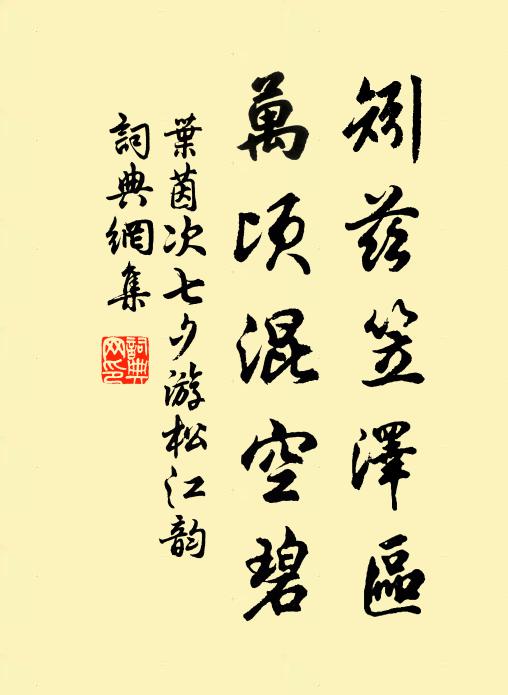 矧茲笠澤區
萬頃混空碧
葉茵次七夕游松江韵
詞典網集
詞典网印